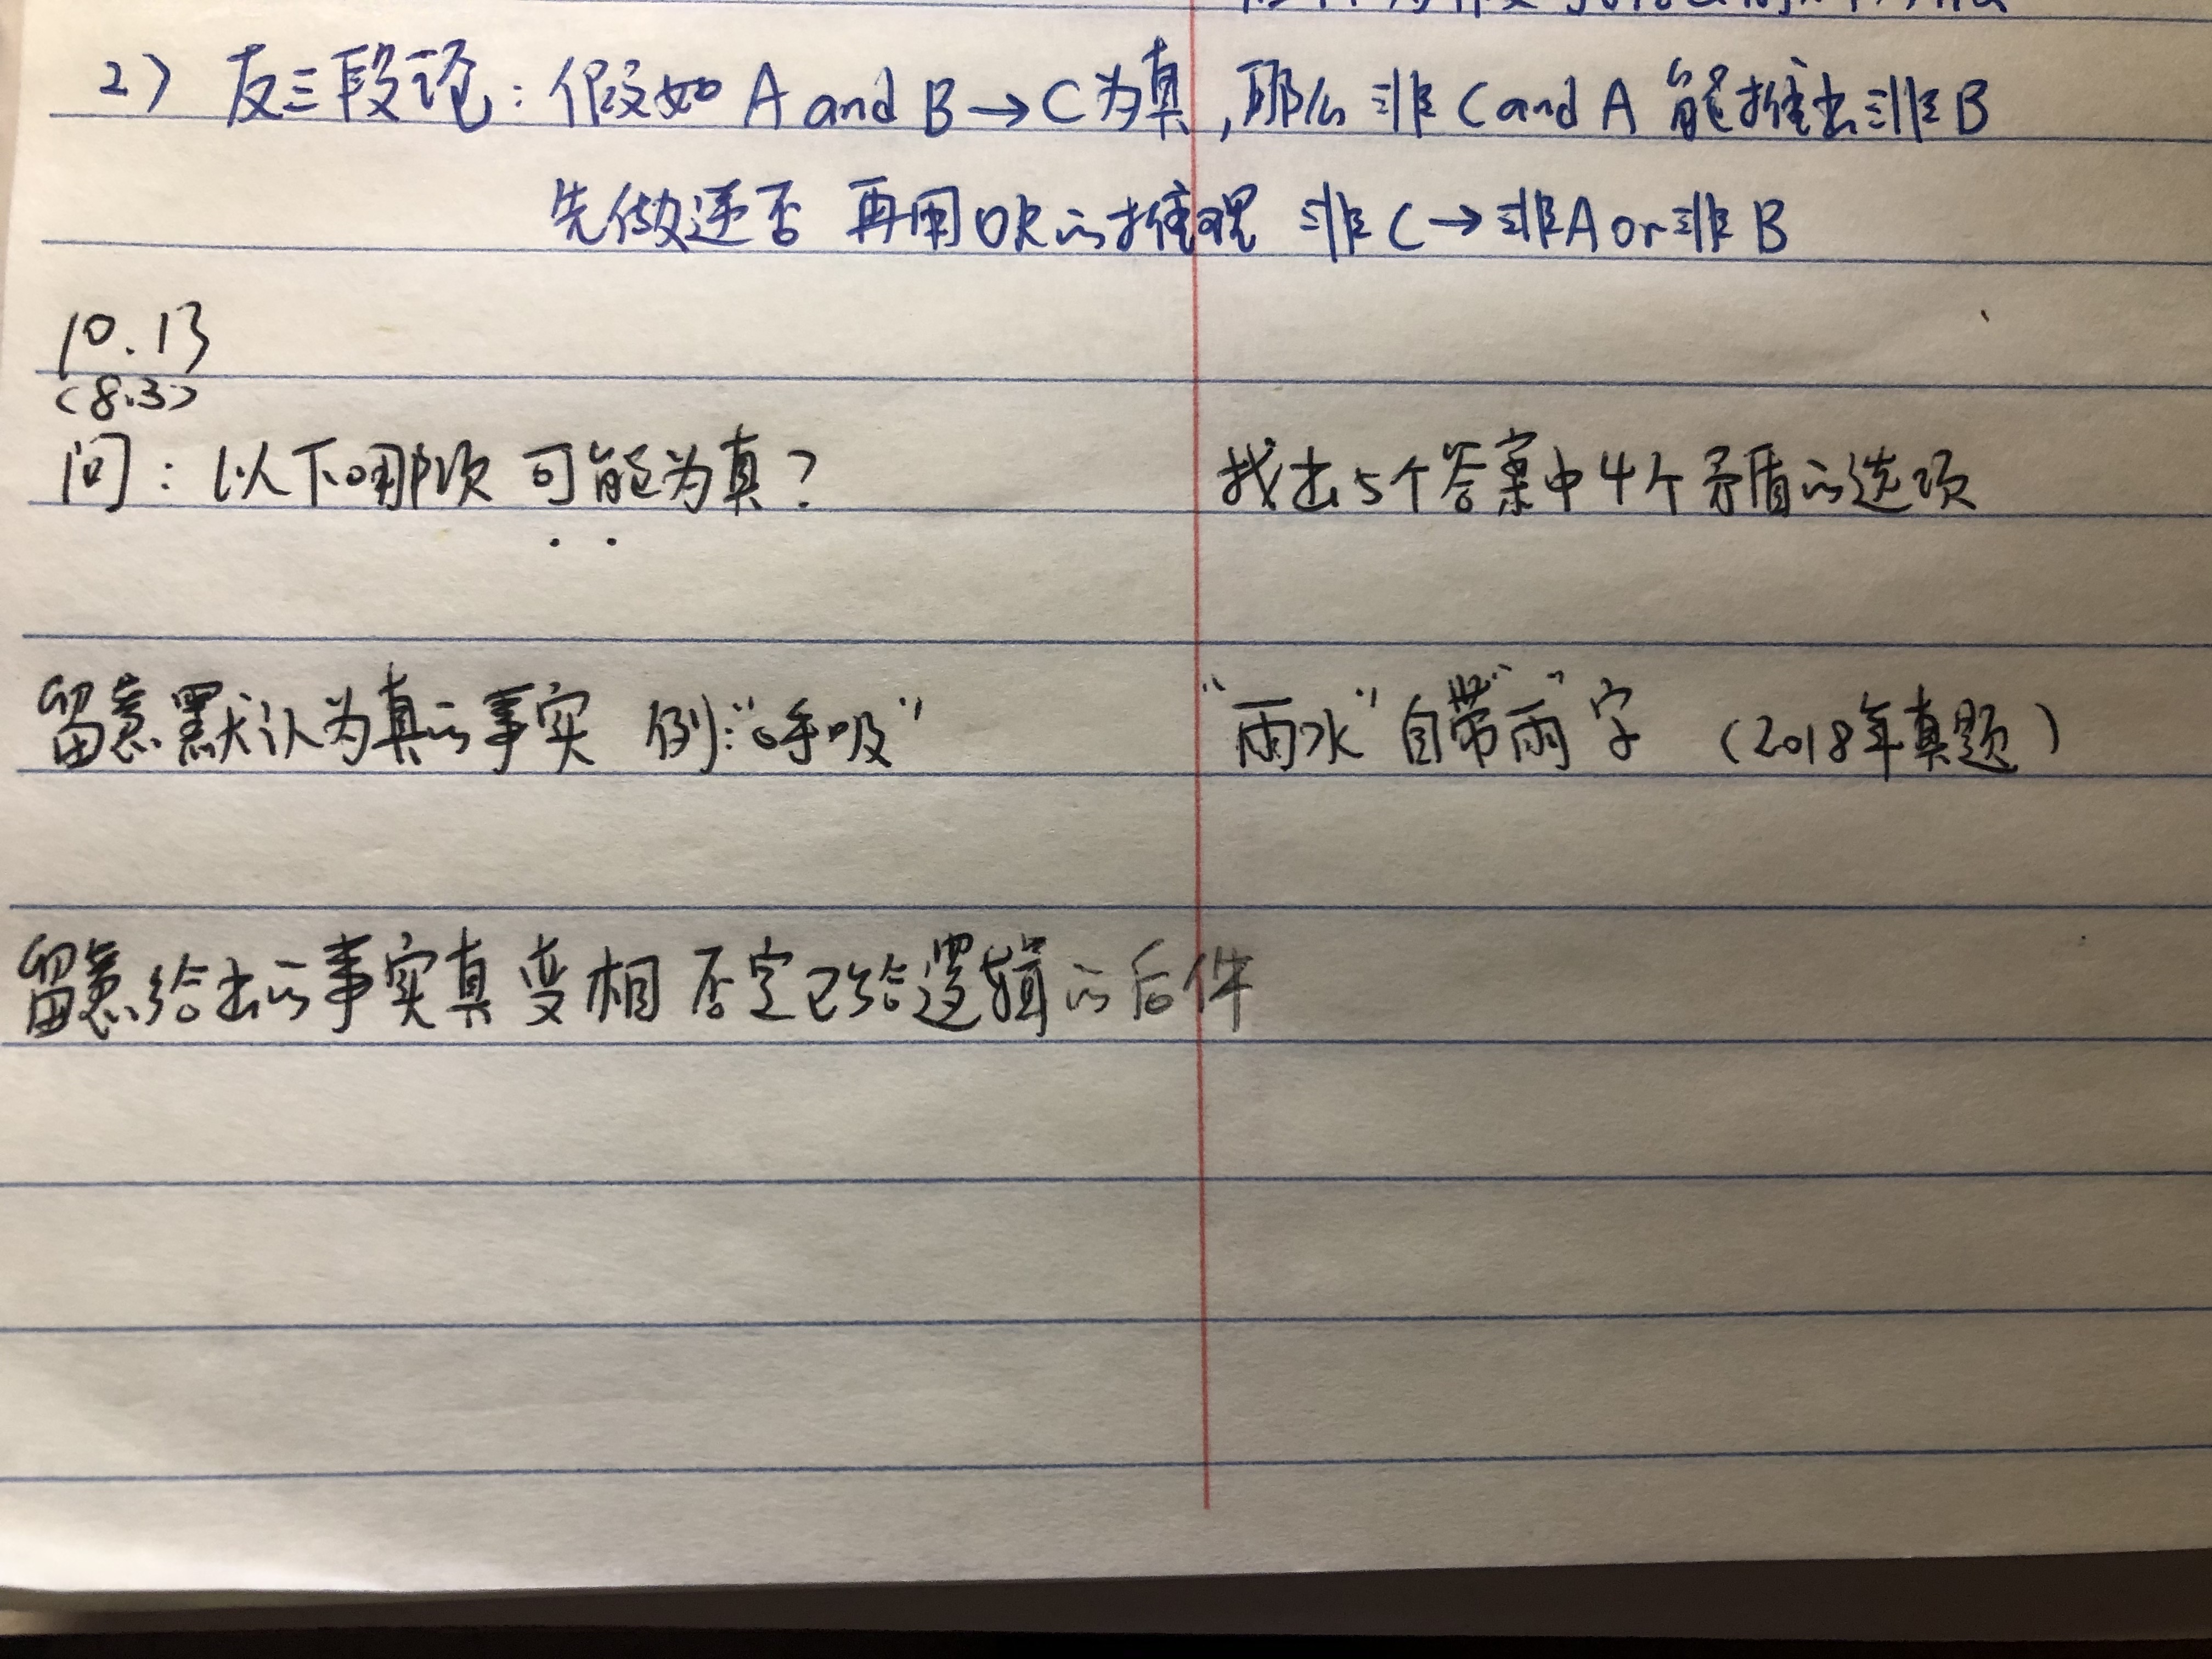 2) 反三段论：假如 A and B → C 为真，那么 非 C and A 能推出非 B
先做逆否 再用OR的推理 非 C → 非A or 非 B
10.13
(8.3)
问：以下哪项 可能为真？ 找出5个答案中4个矛盾的选项
留意默认为真的事实 例：“呼吸” “雨水”自带“雨”字 (2018年真题)
留意给出的事实真变相 否定已给逻辑的后件